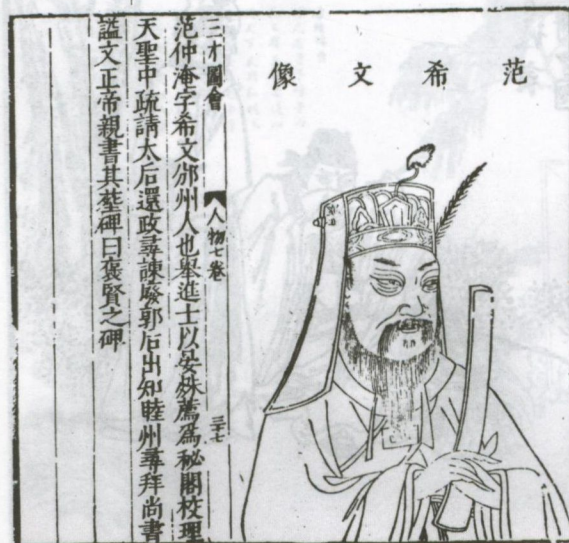 范希文像
三才圖會　人物七卷　三十七
范仲淹字希文邠州人也舉進士以晏殊薦爲秘閣校理
天聖中疏請太后還政尋諫廢郭后出知睦州尋拜尚書
諡文正帝親書其塋碑曰褒賢之碑